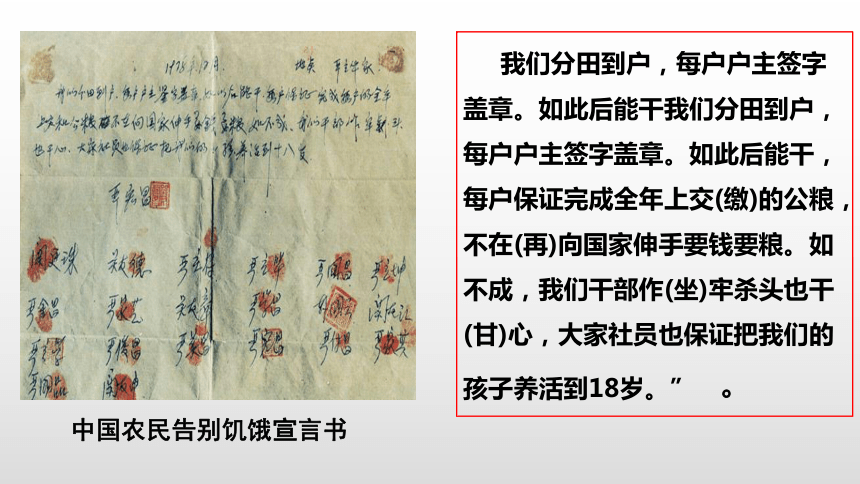 1978年12月. 地点 严立华家.
我们分田到户,每户户主签字盖章,如以后能干,每户保证完成每户的全年
上交和公粮。不在向国家伸手要钱要粮。如不成,我们干部作牢杀头
也干心,大家社员也保证把我们的小孩养活到十八岁。
严宏昌
关友德 严立华 严国昌 严立坤
严金昌 关友章 严学昌
严俊昌
严国品
我们分田到户,每户户主签字
盖章。如此后能干我们分田到户,
每户户主签字盖章。如此后能干,
每户保证完成全年上交(缴)的公粮,
不在(再)向国家伸手要钱要粮。如
不成,我们干部作(坐)牢杀头也干
(甘)心,大家社员也保证把我们的
孩子养活到18岁。” 。
中国农民告别饥饿宣言书